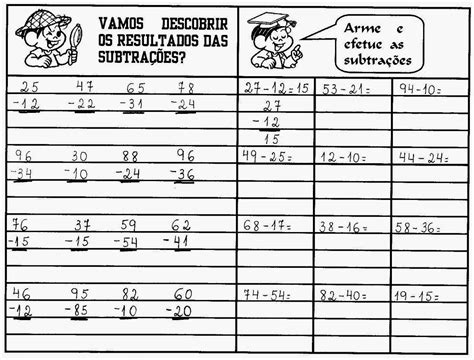 VAMOS DESCOBRIR
OS RESULTADOS DAS
SUBTRAÇÕES?
25 47 65 78
-12 -22 -31 -24
96 30 88 96
-34 -10 -24 -36
76 37 59 62
-15 -15 -54 -41
46 95 82 60
-12 -85 -10 -20
Arme e
efetue as
subtrações
27-12=15 53-21= 94-10=
27
-12
15
49-25= 12-10= 44-24=
68-17= 38-16= 58-36=
74-54= 82-40= 19-15=